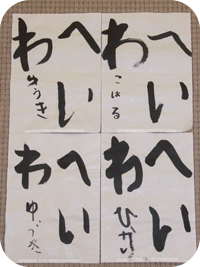 へい
わ
こはる
へい
わ
ゆうき
へい
わ
へい
わ
ゆづき